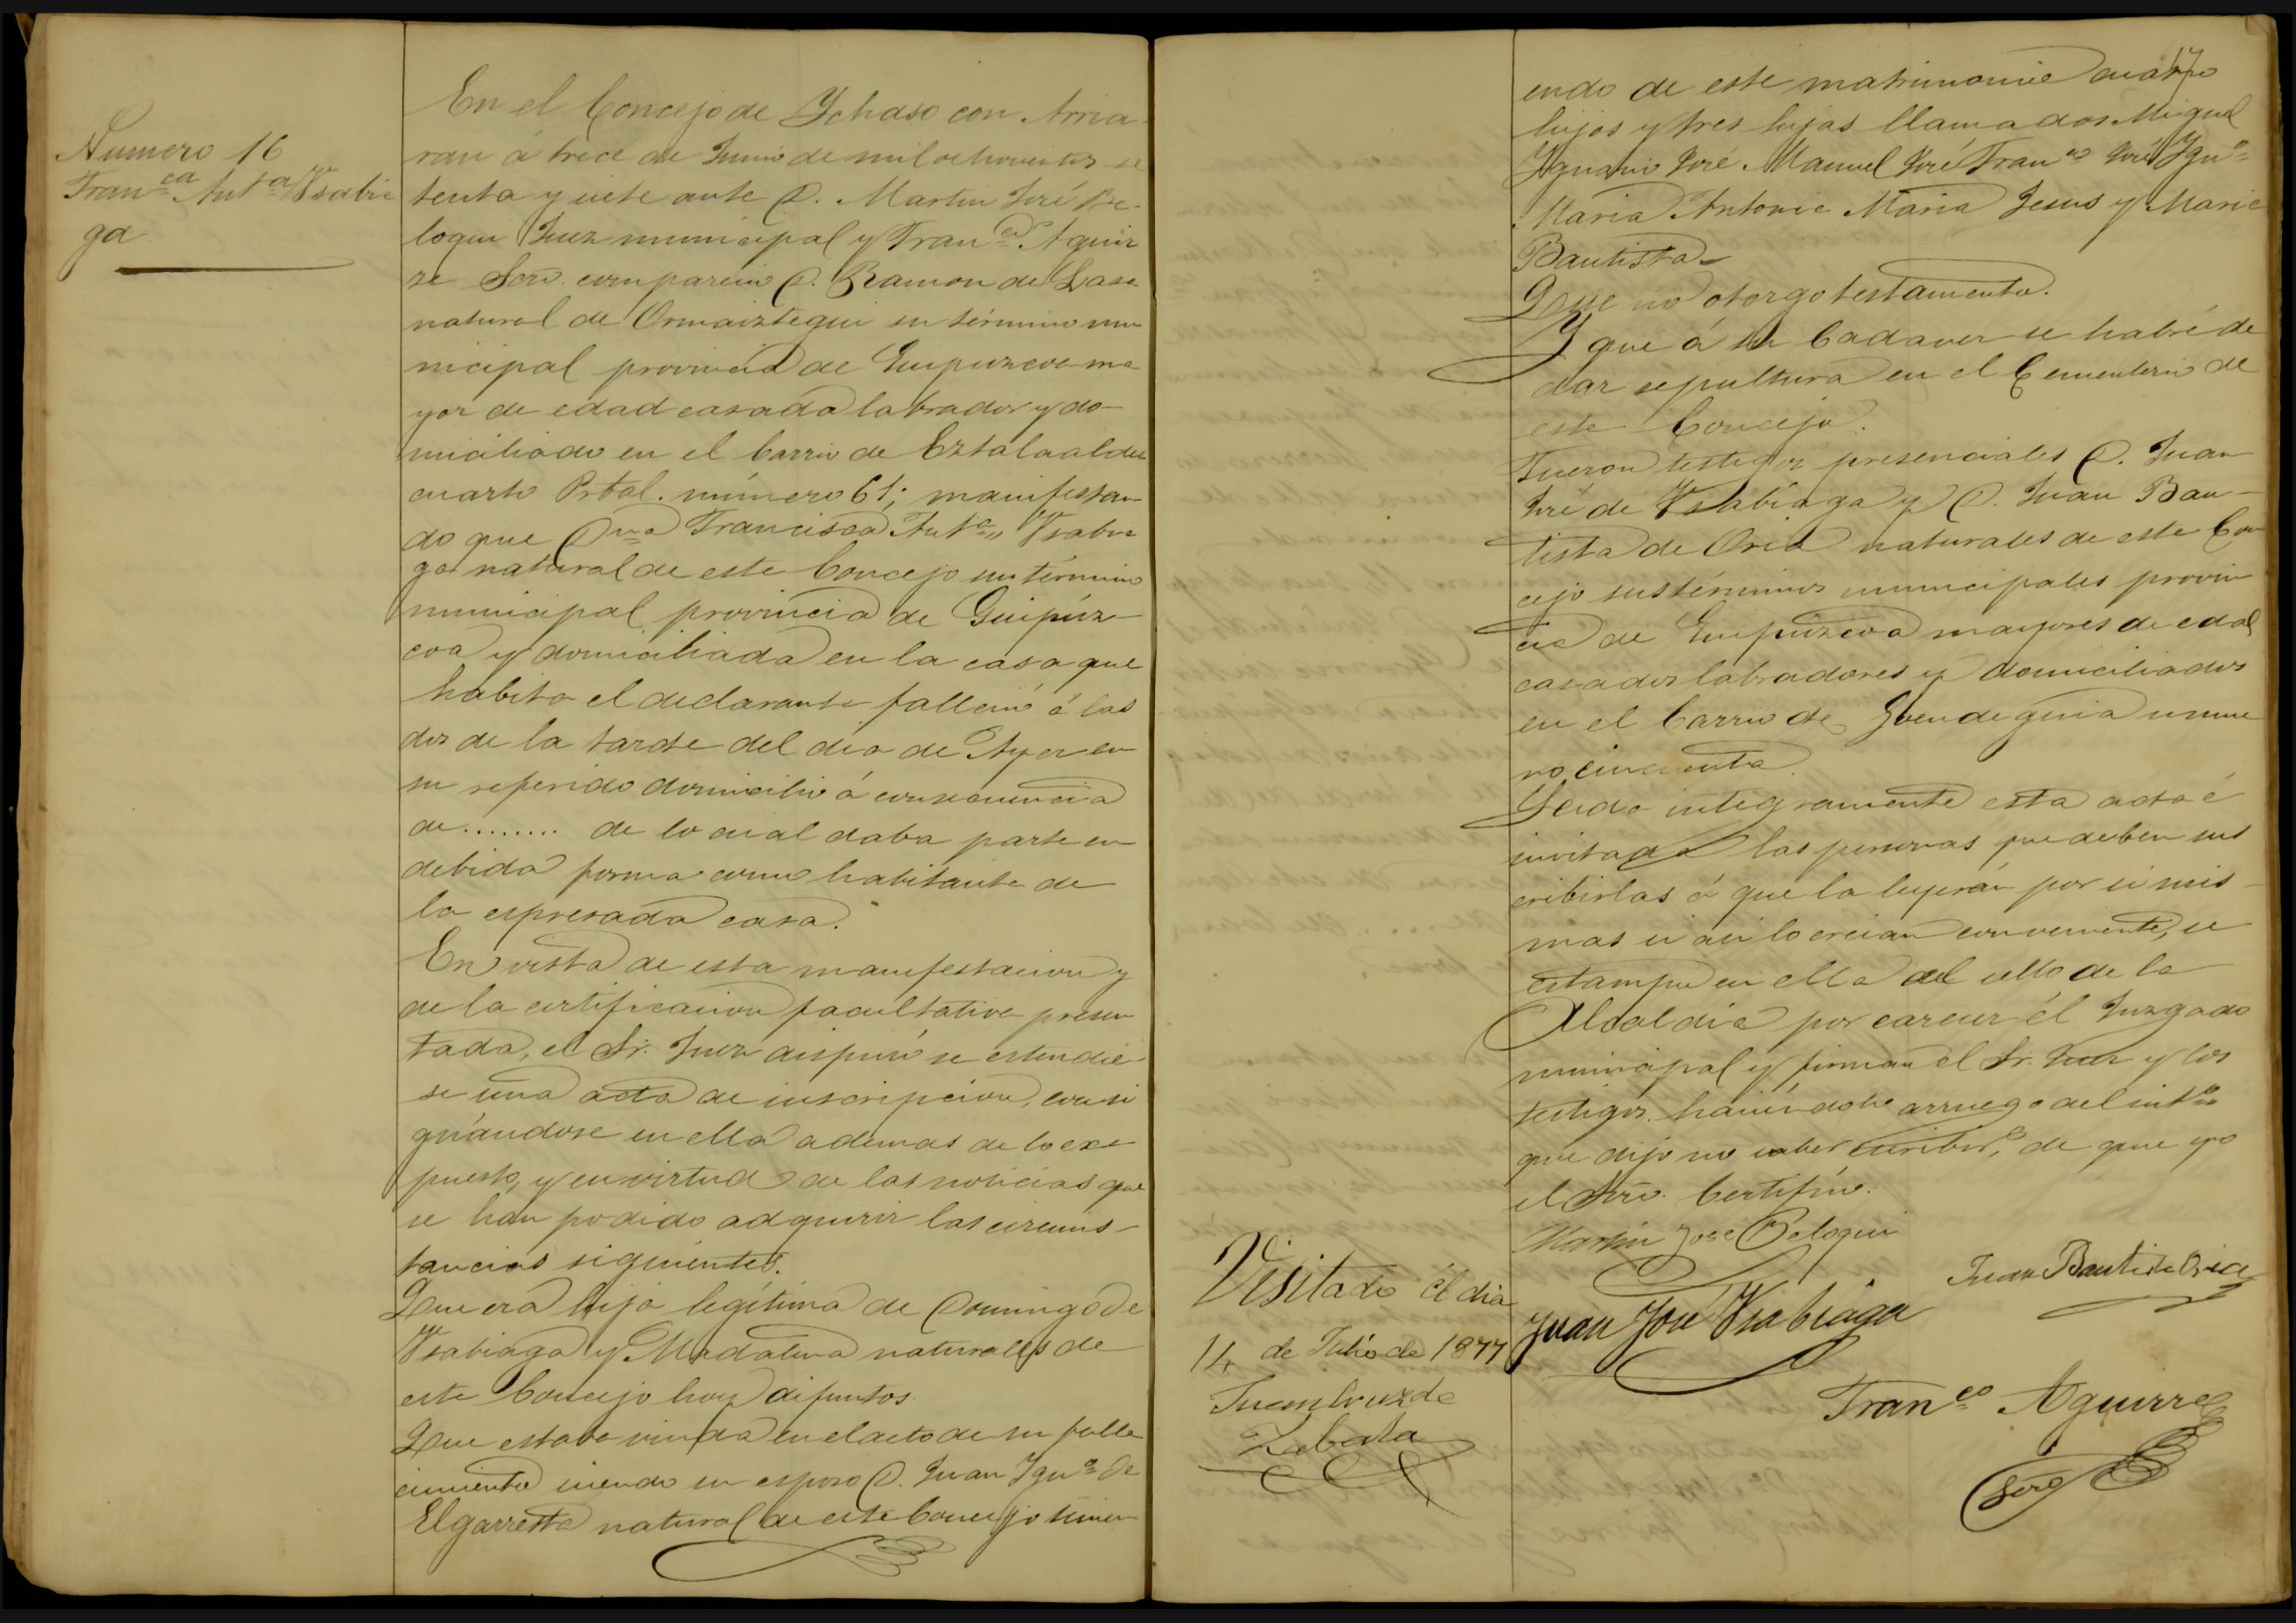 Numero 16
Fran^ca Ant^a Ysabia
ga
En el Concejo de Ychaso con Arria
ran á trece de Junio de mil ochocientos se
tenta y siete ante D. Martin José Be-
loqui Juez municipal y Fran^co Aguir
re Scrio. compareció D. Ramon de Lasa
natural de Ormaiztegui su término mu
nicipal provincia de Guipuzcoa ma
yor de edad casado labrador y do-
miciliado en el barrio de Eztalaaldea
cuarto Prtal. número 61; manifestan
do que Dna Francisca Ant^a Ysabia
ga natural de este Concejo su término
municipal provincia de Guipúz-
coa y domiciliada en la casa que
habita el declarante falleció á las
dos de la tarde del dia de Ayer en
su referido domicilio á consecuencia
de ........ de lo cual daba parte en
debida forma como habitante de
la espresada casa.
En vista de esta manifestacion y
de la certificacion facultativa presen
tada, el Sr. Juez dispuso se estendie
se una acta de inscripcion, consi
gnándose en ella ademas de lo ex-
puesto, y en virtud de las noticias que
se han podido adquirir las circuns-
tancias siguientes.
Que era hija legítima de Domingo de
Ysabiaga y Madalena naturales de
este Concejo hoy difuntos.
Que estaba viuda en el acto de su falle
cimiento siendo su esposo D. Juan Ygn^o de
Elgarresta natural de este Concejo tenien
17
endo de este matrimonio cuatro
hijos y tres hijas llamados Miguel
Ygnacio José Manuel José Fran^co José Ygn^o
Maria Antonia Maria Jesus y Maria
Bautista
Que no otorgo testamento.
Y que á su Cadaver se habré de
dar sepultura en el Cementerio de
este Concejo.
Fueron testigos presenciales D. Juan
José de Ysabiaga y D. Juan Bau-
tista de Oria naturales de este Con
cejo sus términos municipales provin
cia de Guipúzcoa mayores de edad
casados labradores y domiciliados
en el barrio de numè
ro cincuenta.
Leida integramente esta acta é
invitada las personas que deben sus
cribirlas á que la leyerán por si mis-
mas si asi lo creian conveniente, se
estampa en ella del sello de la
Alcaldia por carecer él Juzgado
municipal y firman el Sr. Juez y los
testigos haciéndolo arruego del int^o
que dijo no saber escribir, de que yo
el Scrio. Certifico.
Martin José Beloqui
Juan Bautista Oria
Juan José Ysabiaga
Fran^co Aguirre
Scrio
Visitado el dia
14 de Julio de 1877
Juan Cruz de
Zabala